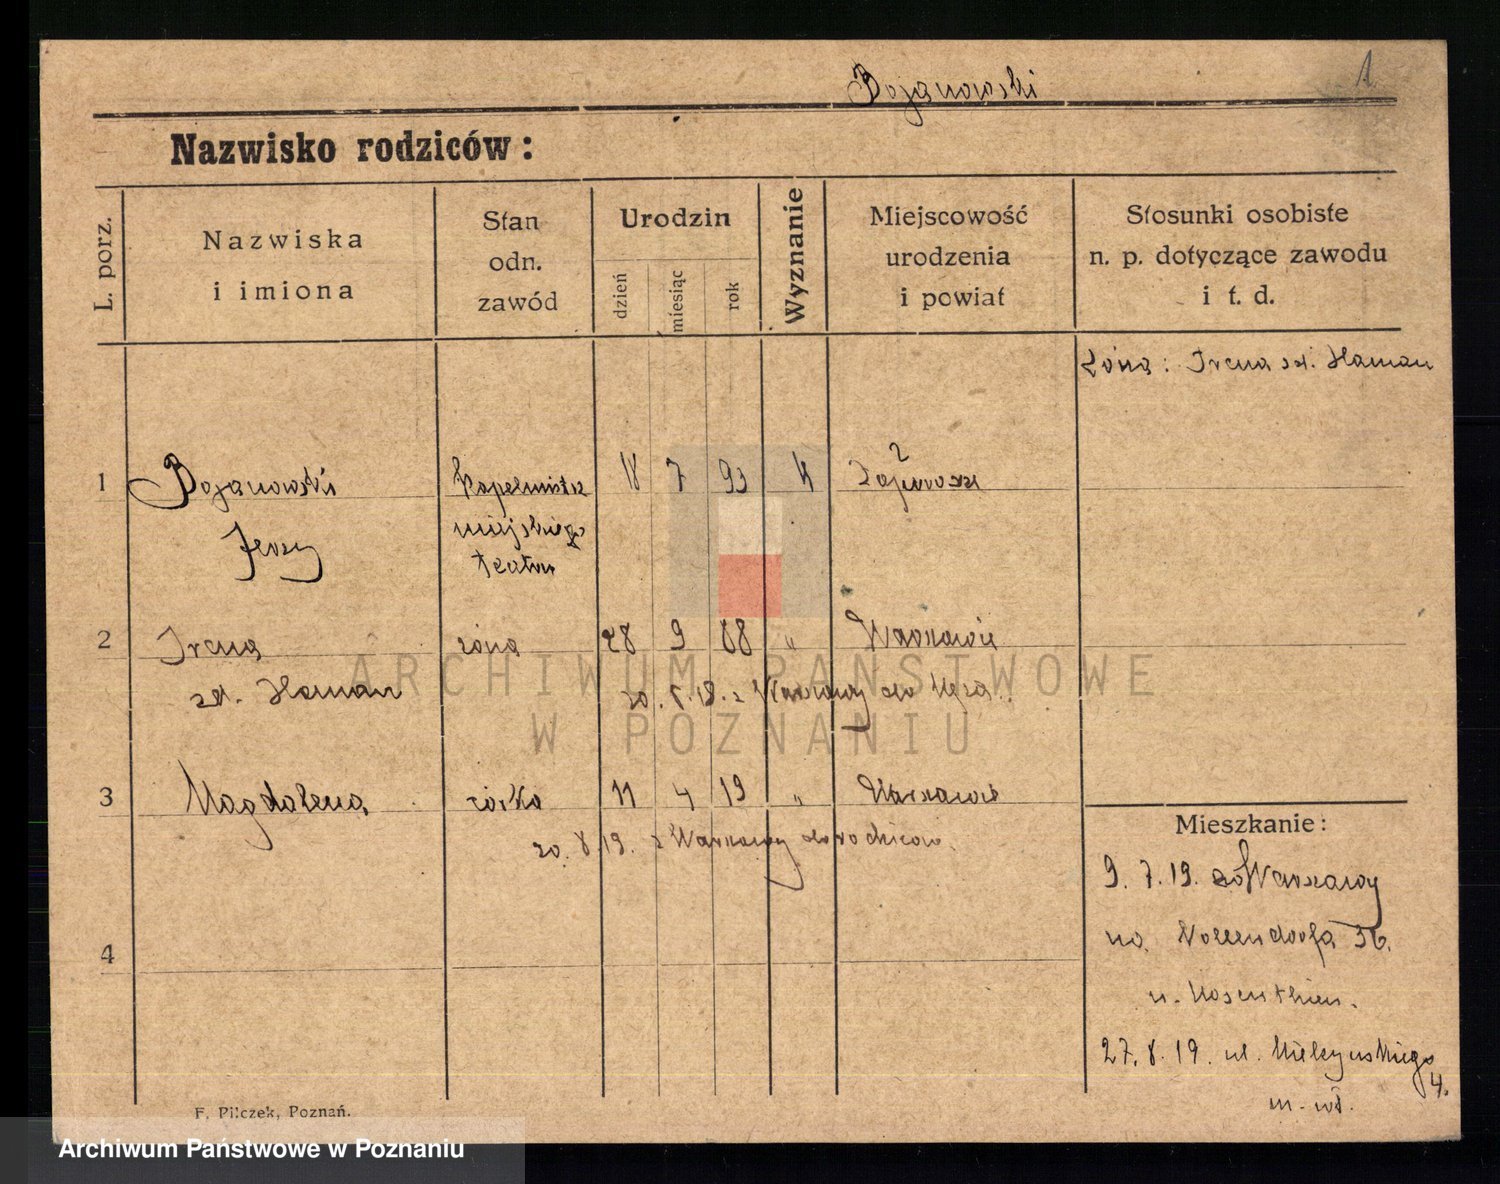 Bojanowski
1
Nazwisko rodziców:
L. porz.
Nazwiska
i imiona
Stan
odn.
zawód
Urodzin
dzień
miesiąc
rok
Wyznanie
Miejscowość
urodzenia
i powiat
Stosunki osobiste
n. p. dotyczące zawodu
i t. d.
żona: Irena zd. Haman
1 Bojanowski Kapelmistrz 18 7 93 K
Jerzy miejskiego
teatru
2 Irena żona 28 9 88 " Warszawie
zd. Haman 20. 8. 19. z Warszawy do
3 Magdalena córka 11 4 19 " Warszawie
20. 8. 19. z Warszawy do rodziców.
4
Mieszkanie:
9. 7. 19. Warszawy
na Nollendorfa 36.
u. Rosenthien.
27. 8. 19. ul. Mielżyńskiego
4.
m. wł.
F. Pilczek, Poznań.
ARCHIWUM PAŃSTWOWE
W POZNANIU
Archiwum Państwowe w Poznaniu